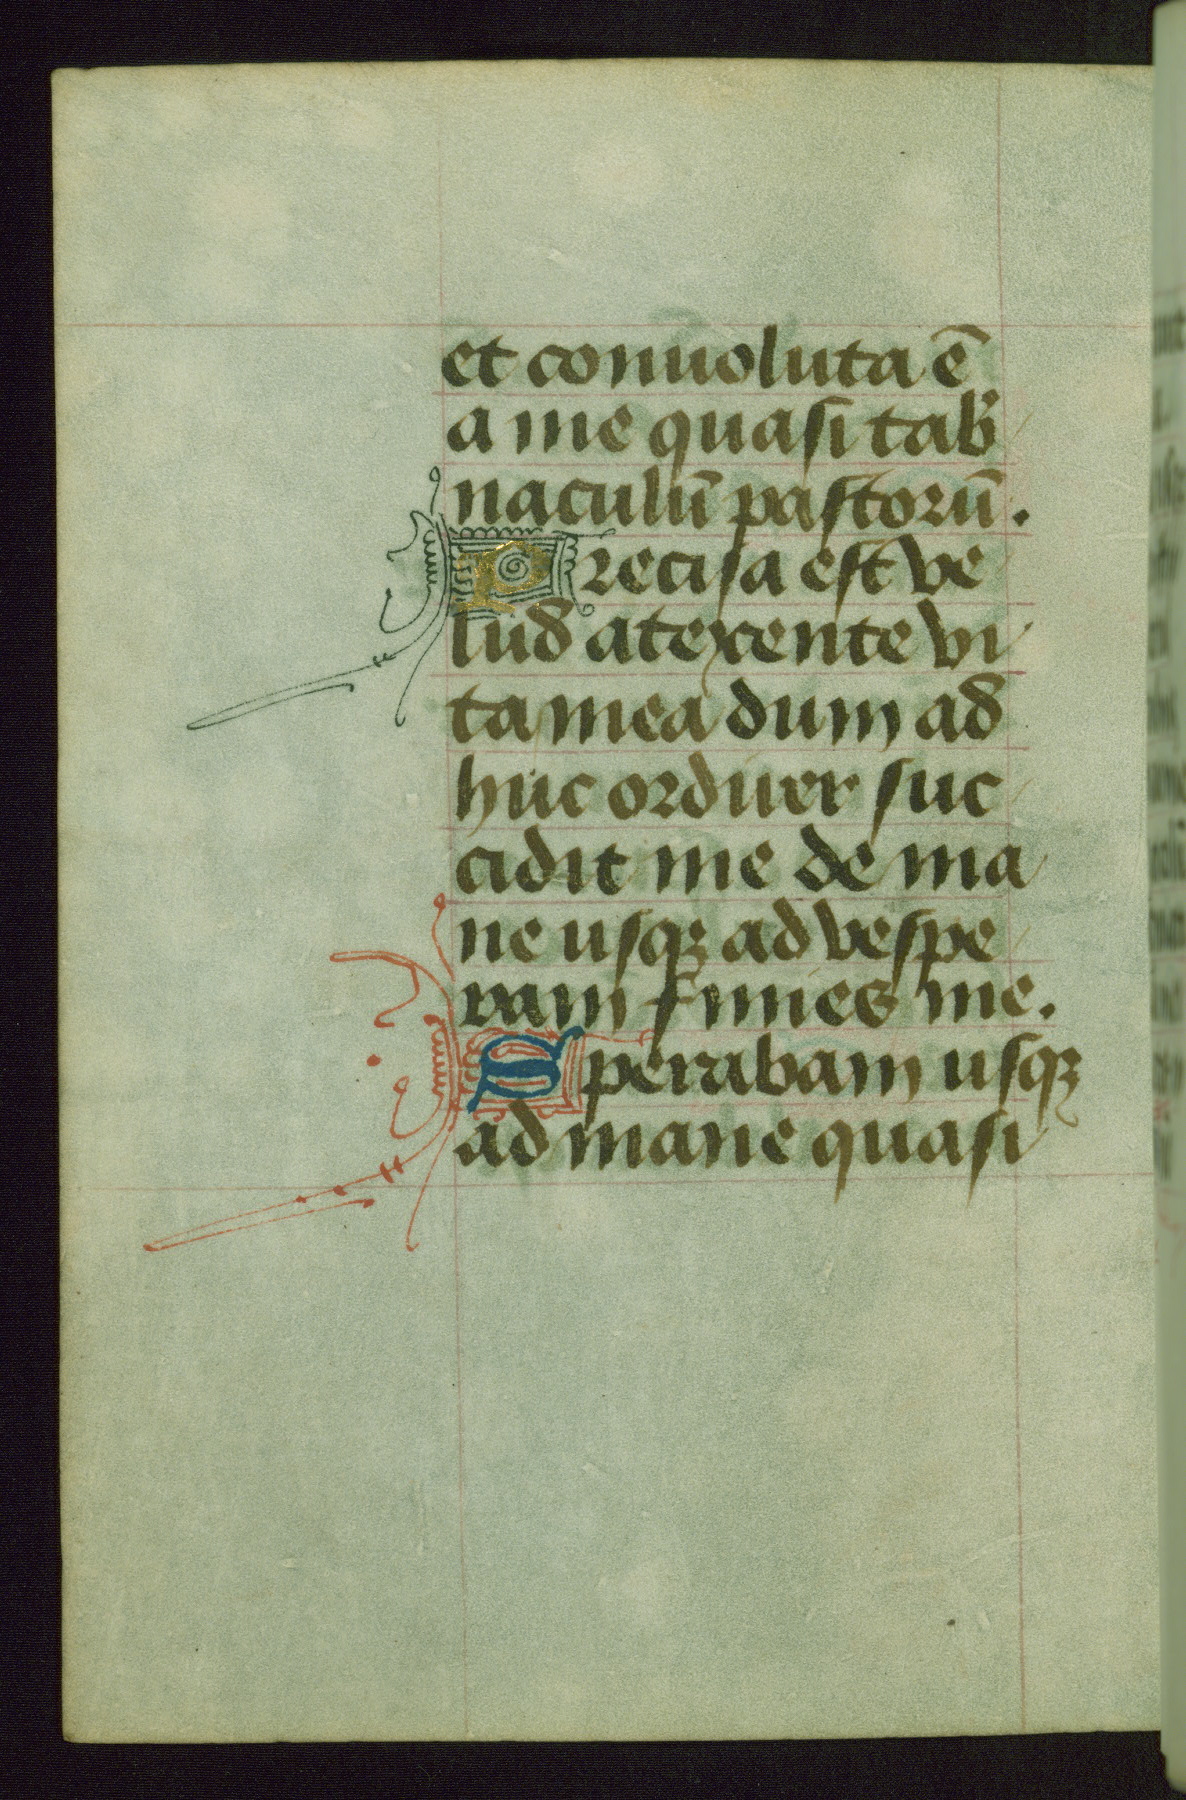 et conuoluta ē
a me quasi tab̄
naculū pastorū.
Precisa est ve
lud̄ atexente vi
ta mea dum ad̄
huc ordirer suc
cidit me de ma
ne usqꝫ ad vespe
ram finies me.
Sperabam usqꝫ
ad mane quasi